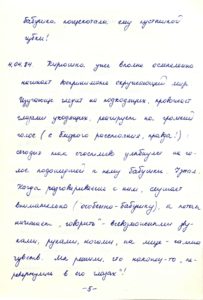 бабушка пощекотала ему кустиной
губки!
4.04.84. Кирюшка уже вполне осмысленно
начинает воспринимать окружающий мир.
Изучающе глядит на подходящих, провожает
глазами уходящих, реагирует на громкий
голос (с близкого расстояния, правда!)
сегодня так счастливо улыбнулся на го-
лос подошедшей к нему бабушки
Когда разговариваешь с ним, слушает
внимательно (особенно - бабушку), а потом
начинает „говорить“ - всевозможными зву-
ками, руками, ногами, на лице - гамма
чувств. Мы решили, что наконец-то, пе-
ревернулись в его глазах"!
-5-